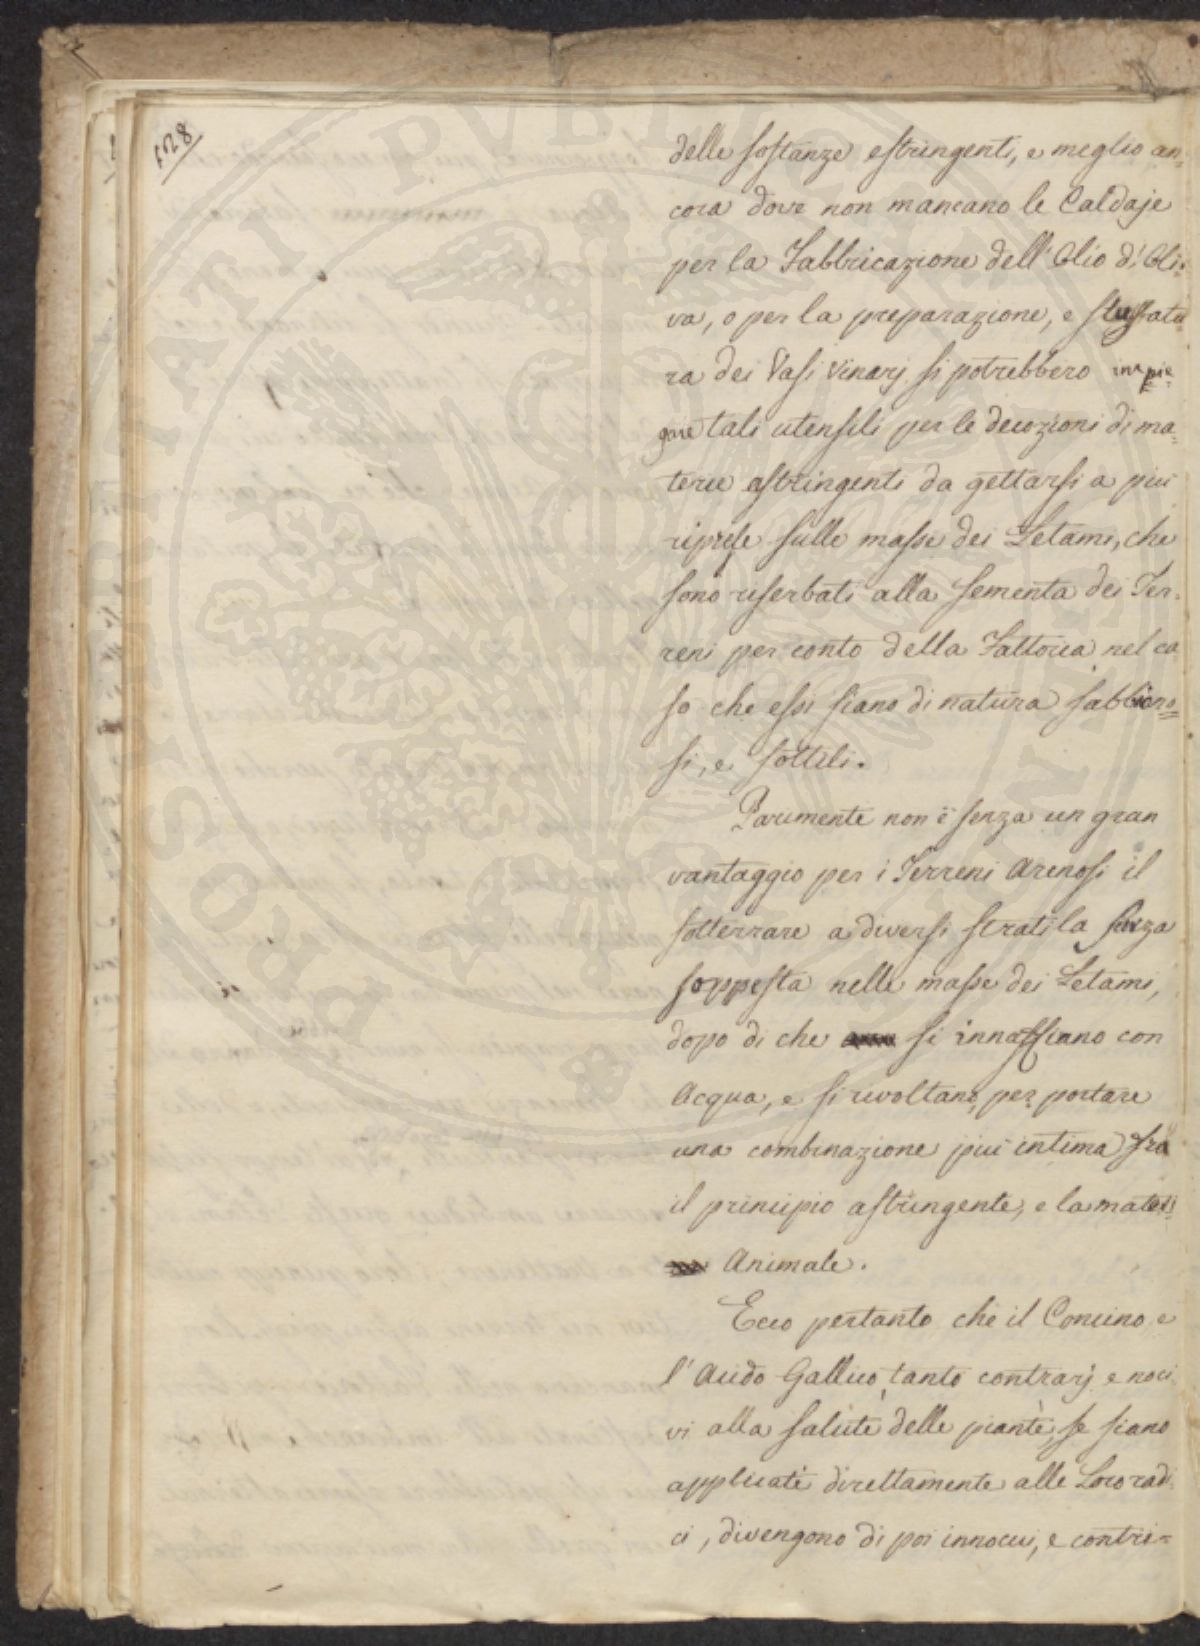 128
delle sostanze estringenti, e meglio an=
cora dove non mancano le Caldaje
per la Fabbricazione dell'Olio d'Oli=
va, o per la preparazione, e stufatu
ra dei Vasi Vinarj si potrebbero impie=
gare tali utensili per le decozioni di ma=
terie astringenti da gettarsi a piu
riprese sulle masse dei Letami, che
sono riserbati alla sementa dei Ter=
reni per conto della Fattoria nel ca
so che essi siano di natura sabbiono=
si, e sottili.
Parimente non è senza un gran
vantaggio per i Terreni Arenosi il
sotterrare a diversi strati la sanza
soppesta nelle masse dei Letami,
dopo di che si innaffiano con
Acqua, e si rivoltano, per portare
una combinazione piu intima fra
il principio astringente, e la materi=
Animale.
Ecco pertanto che il Concino e
l'Acido Gallico, tanto contrarj e noci
vi alla salute delle piante, se siano
applicati direttamente alle Loro radi
ci, divengono di poi innocui, e contri=
PROSPERITATI PVBLICAE